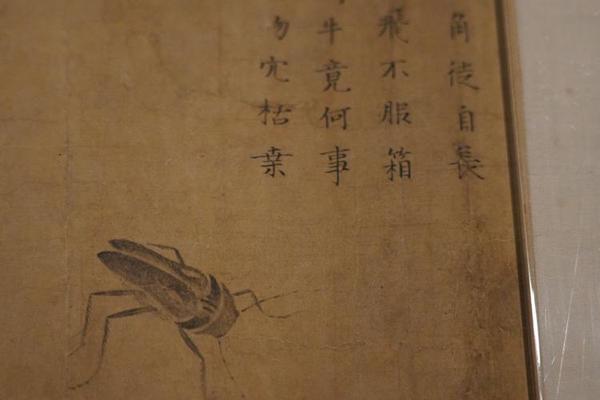 角徒自長
飛不服箱
牛竟何事
吻穴枯桒